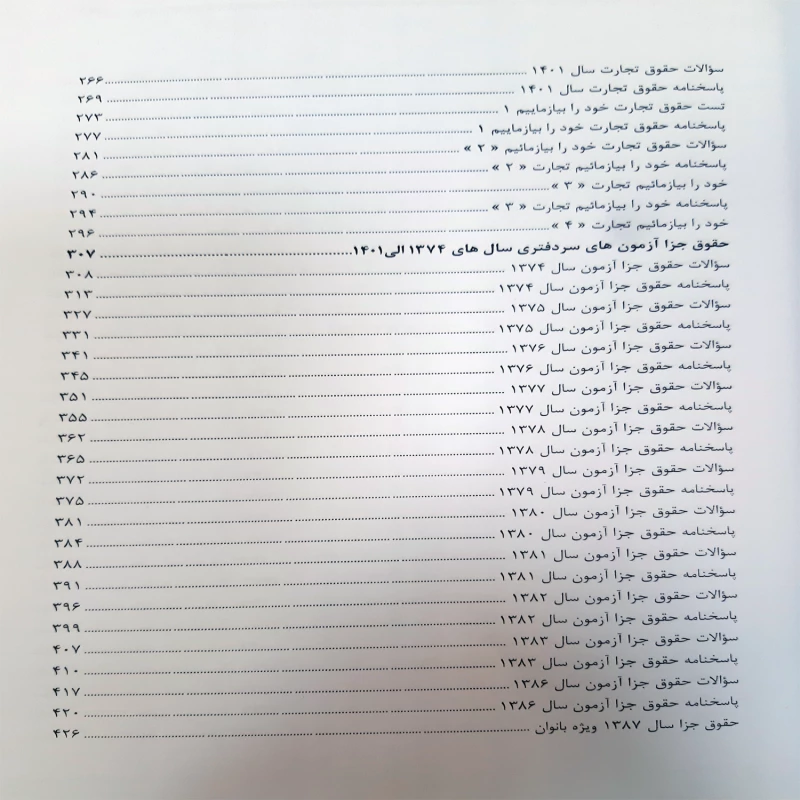 سؤالات حقوق تجارت سال ۱۴۰۱ ........ ۲۶۶
پاسخنامه حقوق تجارت سال ۱۴۰۱ ........ ۲۶۹
تست حقوق تجارت خود را بیازماییم ۱ ........ ۲۷۳
پاسخنامه حقوق تجارت خود را بیازماییم ۱ ........ ۲۷۷
سؤالات حقوق تجارت خود را بیازمائیم « ۲ » ........ ۲۸۱
پاسخنامه خود را بیازمائیم تجارت « ۲ » ........ ۲۸۶
خود را بیازمائیم تجارت « ۳ » ........ ۲۹۰
پاسخنامه خود را بیازمائیم تجارت « ۳ » ........ ۲۹۴
خود را بیازمائیم تجارت « ۴ » ........ ۲۹۶
حقوق جزا آزمون های سردفتری سال های ۱۳۷۴ الی۱۴۰۱ ........ ۳۰۷
سؤالات حقوق جزا آزمون سال ۱۳۷۴ ........ ۳۰۸
پاسخنامه حقوق جزا آزمون سال ۱۳۷۴ ........ ۳۱۳
سؤالات حقوق جزا آزمون سال ۱۳۷۵ ........ ۳۲۷
پاسخنامه حقوق جزا آزمون سال ۱۳۷۵ ........ ۳۳۱
سؤالات حقوق جزا آزمون سال ۱۳۷۶ ........ ۳۴۱
پاسخنامه حقوق جزا آزمون سال ۱۳۷۶ ........ ۳۴۵
سؤالات حقوق جزا آزمون سال ۱۳۷۷ ........ ۳۵۱
پاسخنامه حقوق جزا آزمون سال ۱۳۷۷ ........ ۳۵۵
سؤالات حقوق جزا آزمون سال ۱۳۷۸ ........ ۳۶۲
پاسخنامه حقوق جزا آزمون سال ۱۳۷۸ ........ ۳۶۵
سؤالات حقوق جزا آزمون سال ۱۳۷۹ ........ ۳۷۲
پاسخنامه حقوق جزا آزمون سال ۱۳۷۹ ........ ۳۷۵
سؤالات حقوق جزا آزمون سال ۱۳۸۰ ........ ۳۸۱
پاسخنامه حقوق جزا آزمون سال ۱۳۸۰ ........ ۳۸۴
سؤالات حقوق جزا آزمون سال ۱۳۸۱ ........ ۳۸۸
پاسخنامه حقوق جزا آزمون سال ۱۳۸۱ ........ ۳۹۱
سؤالات حقوق جزا آزمون سال ۱۳۸۲ ........ ۳۹۶
پاسخنامه حقوق جزا آزمون سال ۱۳۸۲ ........ ۳۹۹
سؤالات حقوق جزا آزمون سال ۱۳۸۳ ........ ۴۰۷
پاسخنامه حقوق جزا آزمون سال ۱۳۸۳ ........ ۴۱۰
سؤالات حقوق جزا آزمون سال ۱۳۸۶ ........ ۴۱۷
پاسخنامه حقوق جزا آزمون سال ۱۳۸۶ ........ ۴۲۰
حقوق جزا سال ۱۳۸۷ ویژه بانوان ........ ۴۲۶